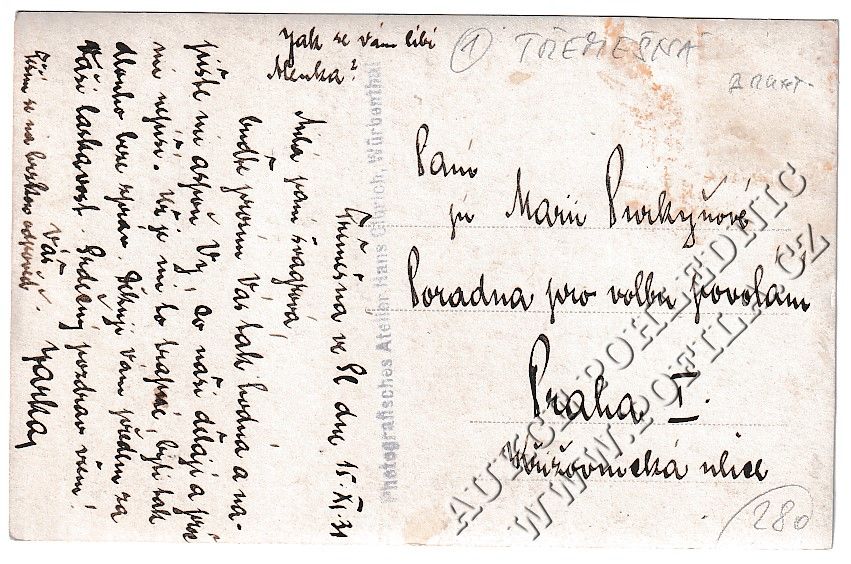 Jak se vám líbí
Alenka?
① TŘEMEŠNÁ
Třemešná ve Sl dne 15. XI. 31
Milá paní švagrová,
buďte prosím Vás tak hodná a na-
pište mi aspoň Vy, co naši dělají a proč
mi nepíší. Už je mi to trapné, býti tak
dlouho beze zpráv. Děkuji Vám předem za
Vaši laskavost. Srdečný pozdrav všem!
Váš Jarka
Těším se na brzkou odpověď.
Photografisches Atelier Hans Gürlich, Würbenthal
Paní
pí Marii Purkyňové
Poradna pro volbu povolání
Praha I.
Křižovnická ulice
280
AUKCE POHLEDNIC
WWW.POFILA.CZ